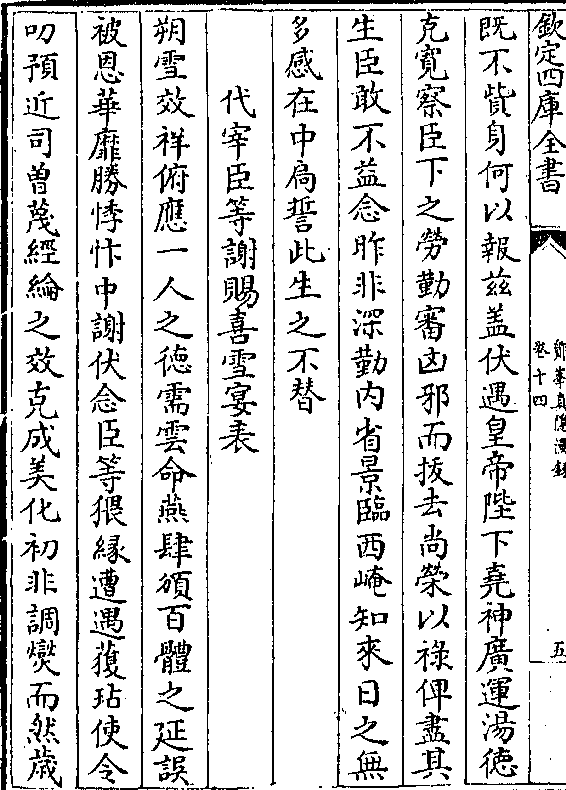 欽定四庫全書
鄮峯真隱漫録
卷十四
五
既不貲身何以報兹盖伏遇皇帝陛下堯神廣運湯徳
克寛察臣下之勞勤審凶邪而拔去尚榮以祿俾盡其
生臣敢不益念昨非深勤内省景臨西崦知來日之無
多感在中扃誓此生之不替
代宰臣等謝賜喜雪宴表
朔雪效祥俯應一人之徳需雲命燕肆頒百體之延誤
被恩華靡勝悸忭中謝伏念臣等猥縁遭遇蕧玷使令
叨預近司曽蔑經綸之效克成美化初非調爕而然歳